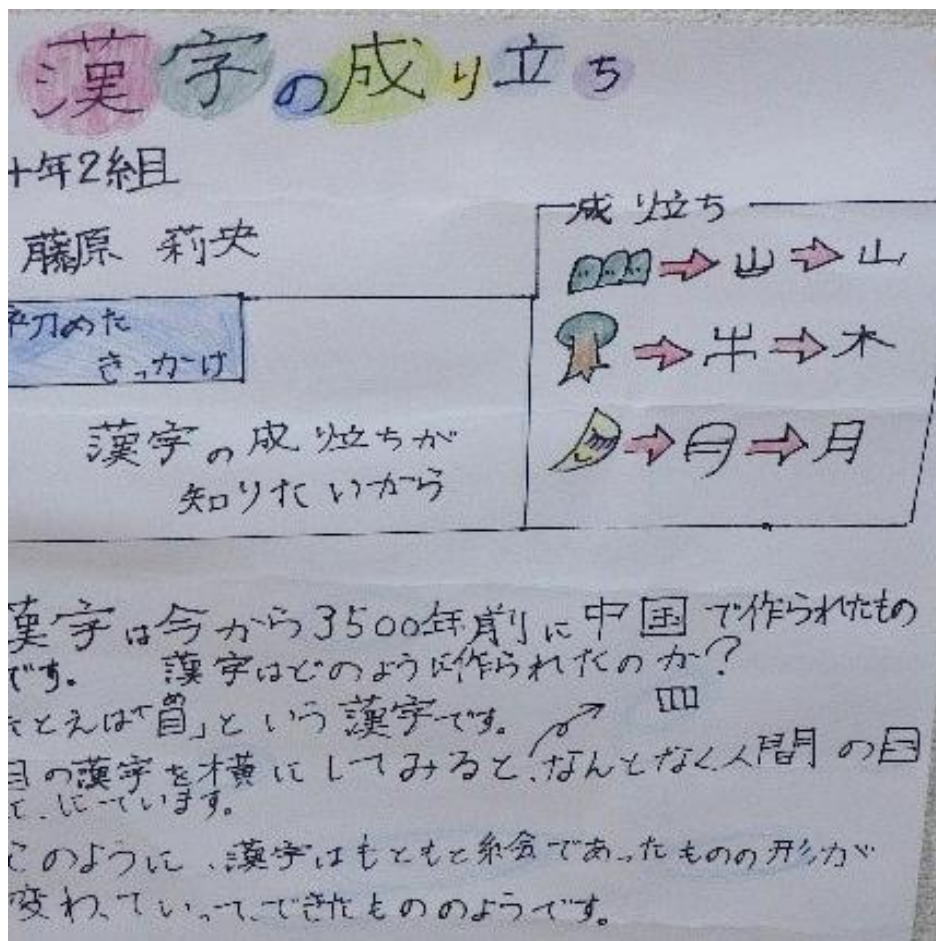 漢字の成り立ち
十年2組
藤原 莉央
初めた
きっかけ
漢字の成り立ちが
知りたいから
成り立ち
山
木
月
漢字は今から3500年前に中国で作られたもの
です。 漢字はどのように作られたのか?
たとえば「目」という漢字です。
目の漢字を横にしてみると、なんとなく人間の目
に、にています。
このように、漢字はもともと絵であったものの形が
変わっていって、できたもののようです。